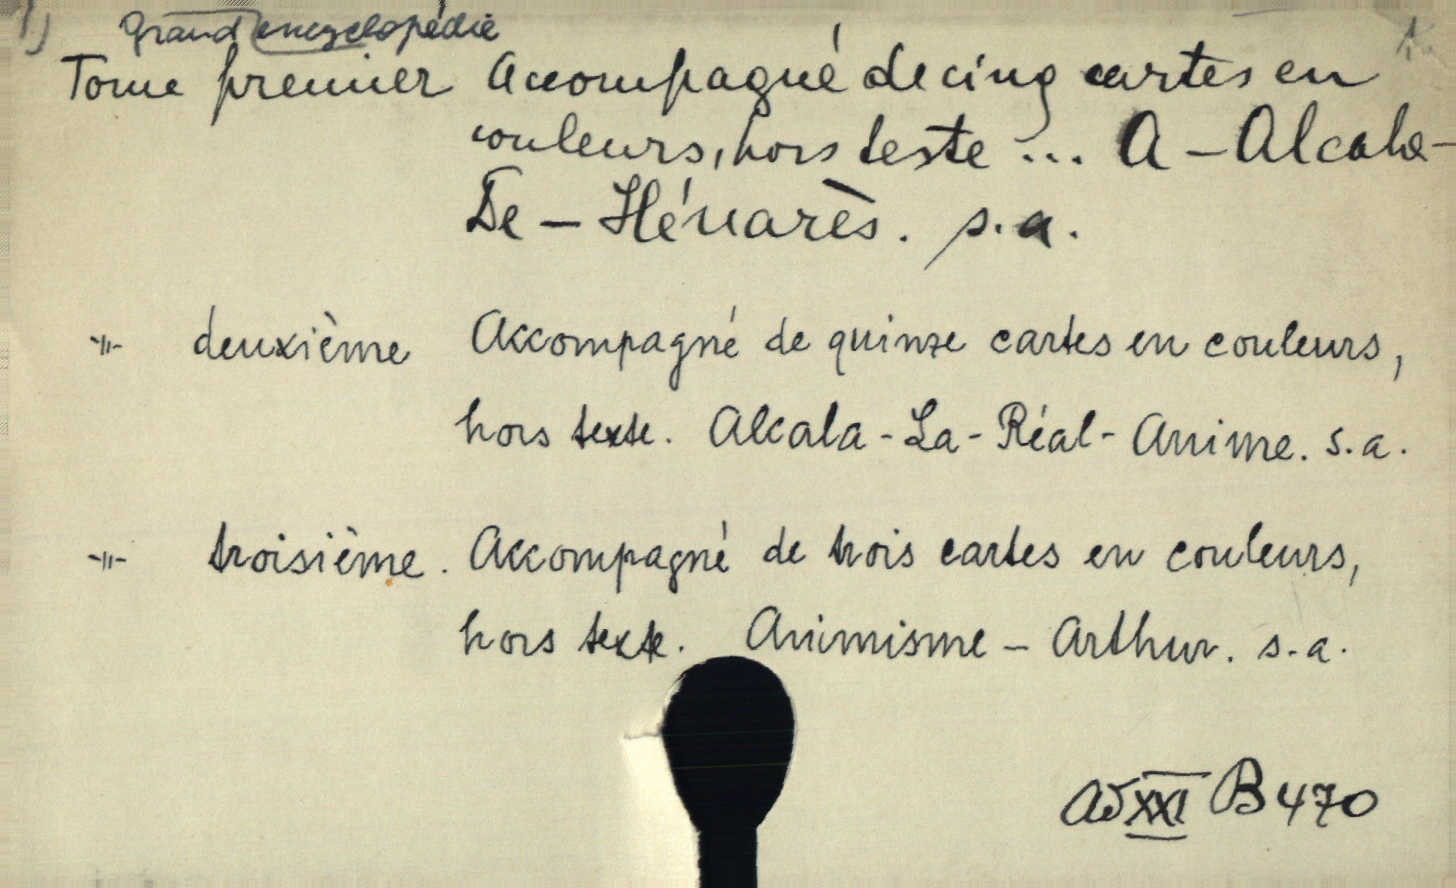 1) Grand encyclopédie
Tome premier Accompagné de cinq cartes en
couleurs, hors texte ... A - Alcala-
De - Hénarès. s.a.
-〃- deuxième Accompagné de quinze cartes en couleurs,
hors texte. Alcala - La - Réal - Anime. s.a.
-〃- troisième. Accompagné de trois cartes en couleurs,
hors texte. Animisme - Arthur. s.a.
XXI B 470